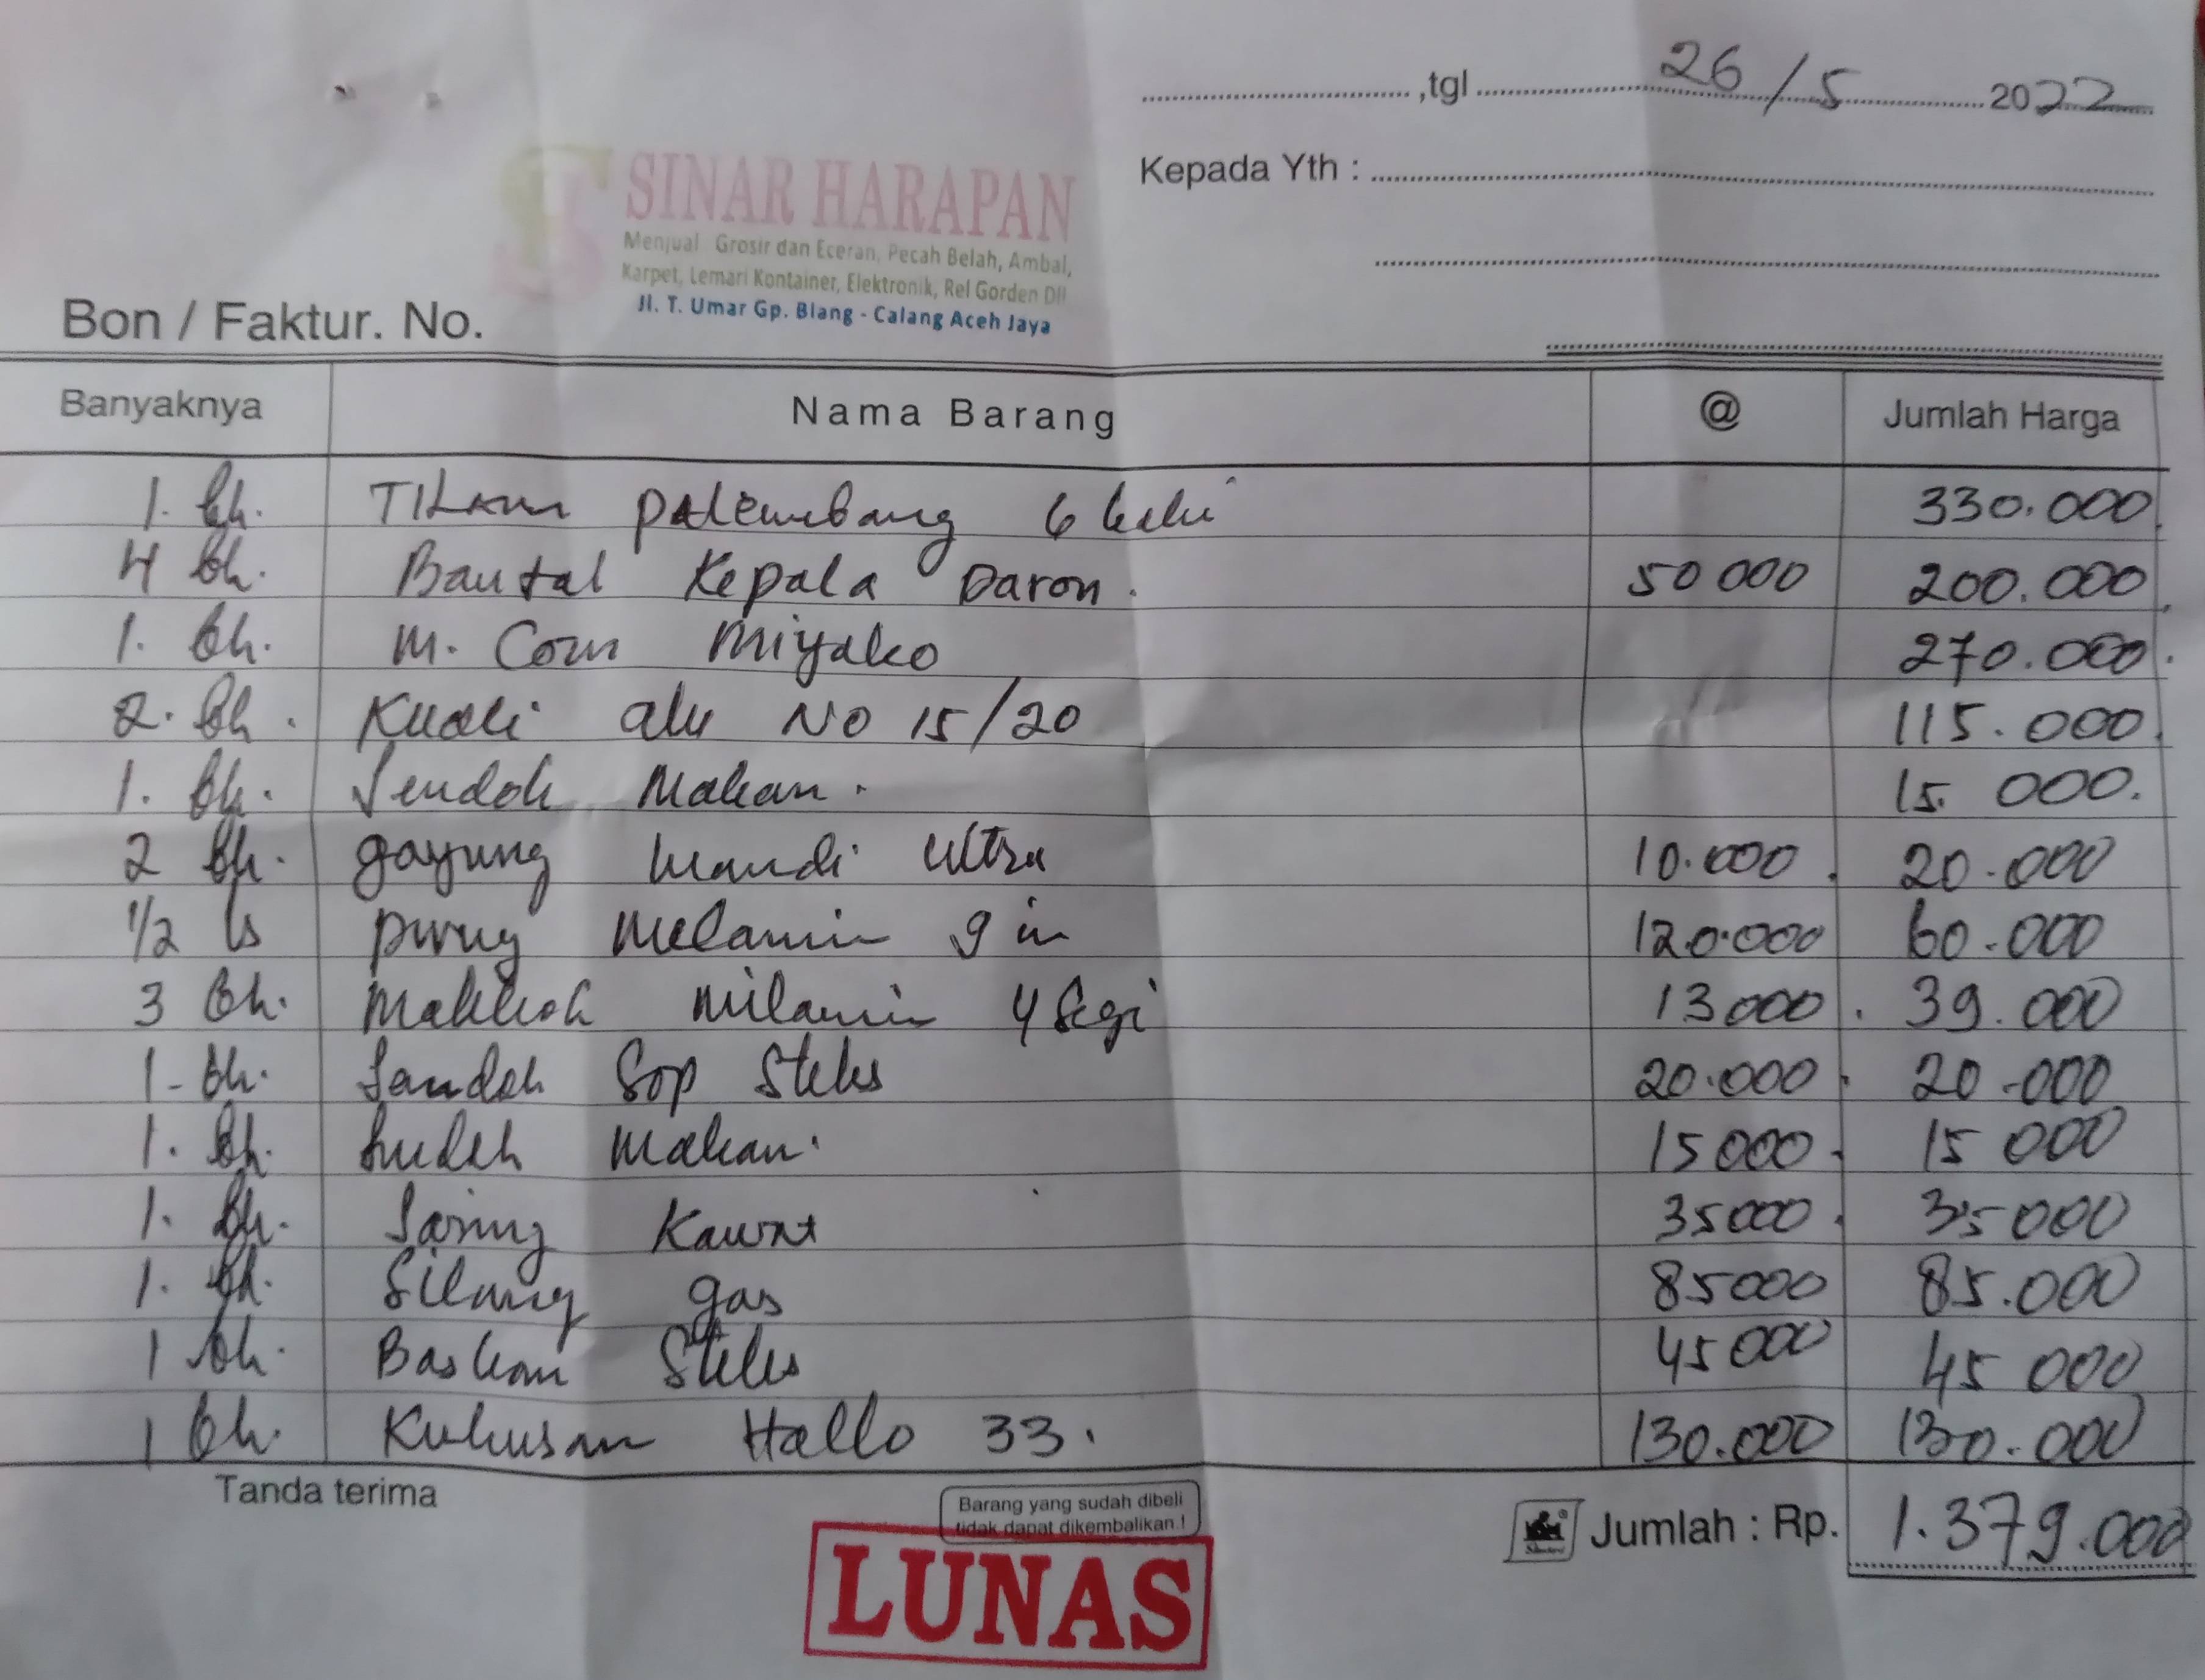 ,tgl 26/5 2022
Kepada Yth :
SINAR HARAPAN
Menjual Grosir dan Eceran, Pecah Belah, Ambal,
Karpet, Lemari Kontainer, Elektronik, Rel Gorden Dll
Jl. T. Umar Gp. Blang - Calang Aceh Jaya
Bon / Faktur. No.
Banyaknya Nama Barang @ Jumlah Harga
1. bh. Tikam palembang 6 kaki 330.000
4 bh. Bantal Kepala Daron. 50 000 200.000
1. bh. M. Com Miyako 270.000
2. bh. Kuali alu No 15/20 115.000
1. bh. Sendok Makan. 15.000.
2 bh. gayung mandi ultra 10.000 20.000
1/2 ls piring Melamin 9 in 120.000 60.000
3 bh. Makkok Milamin 4 Segi 13000 39.000
1- bh. Sandok Sop Steles 20.000 20.000
1. bh. makan. 15000 15 000
1. bh. Saring Kawat 35000 35000
1. bh. Silang gas 85000 85.000
1 bh. Baskom Steles 45000 45 000
1 bh. Kukusan Hallo 33. 130.000 130.000
Tanda terima
Barang yang sudah dibeli
tidak dapat dikembalikan.!
Jumlah : Rp. 1.379.000
LUNAS